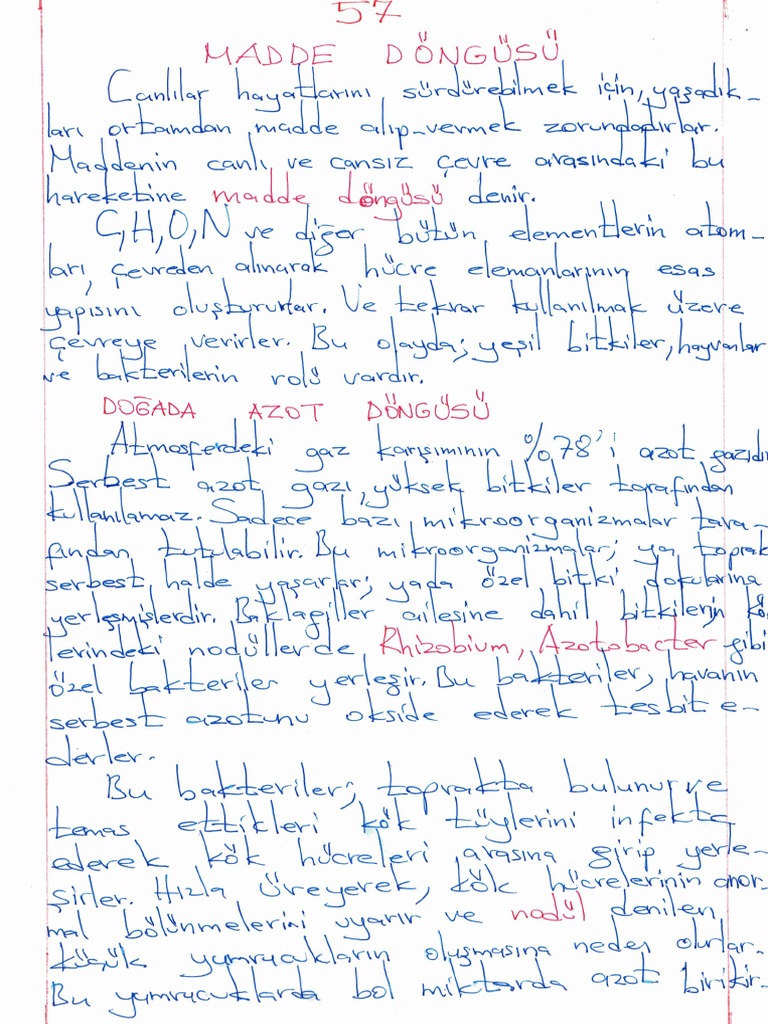 57
MADDE DÖNGÜSÜ
Canlılar hayatlarını sürdürebilmek için, yaşadık-
ları ortamdan madde alıp-vermek zorundadırlar.
Maddenin canlı ve cansız çevre arasındaki bu
hareketine madde döngüsü denir.
C, H, O, N ve diğer bütün elementlerin atom-
ları, çevreden alınarak hücre elemanlarının esas
yapısını oluştururlar. Ve tekrar kullanılmak üzere
çevreye verirler. Bu olayda; yeşil bitkiler, hayvanlar
ve bakterilerin rolü vardır.
DOĞADA AZOT DÖNGÜSÜ
Atmosferdeki gaz karışımının %78'i azot gazıdı
Serbest azot gazı, yüksek bitkiler tarafından
kullanılamaz. Sadece bazı mikroorganizmalar tara-
fından tutulabilir. Bu mikroorganizmalar; ya toprak
serbest halde yaşarlar; yada özel bitki dokularına
yerleşmişlerdir. Baklagiller ailesine dahil bitkilerin kö
lerindeki nodüllerde Rhizobium, Azotobacter gibi
özel bakteriler yerleşir. Bu bakteriler, havanın
serbest azotunu okside ederek tesbit e-
derler.
Bu bakteriler; toprakta bulunur ve
temas ettikleri kök tüylerini infekte
ederek kök hücreleri arasına girip yerle-
şirler. Hızla üreyerek, kök hücrelerinin anor-
mal bölünmelerini uyarır ve nodül denilen
küçük yumrucukların oluşmasına neden olurlar.
Bu yumrucuklarda bol miktarda azot birikir.